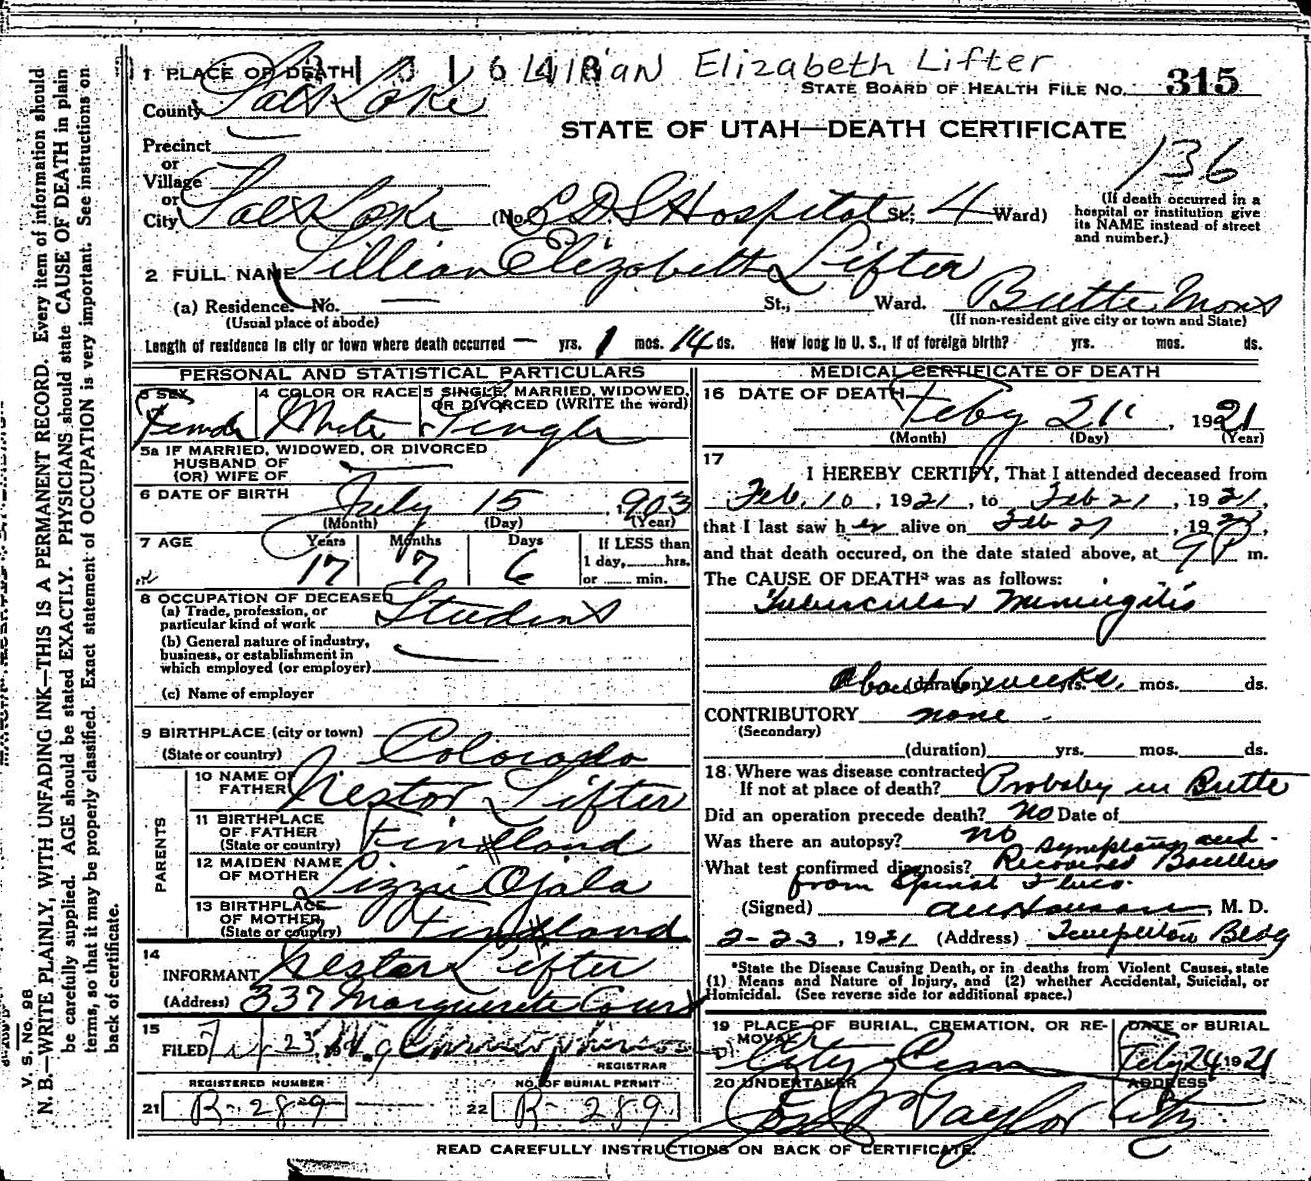 Lillian Elizabeth Lifter
1 PLACE OF DEATH
STATE BOARD OF HEALTH FILE No. 315
County Salt Lake
STATE OF UTAH—DEATH CERTIFICATE
136
Precinct
or
Village
or
City Salt Lake (No. L D S Hospital St.; 4 Ward)
(If death occurred in a
hospital or institution give
its NAME instead of street
and number.)
2 FULL NAME Lillian Elizabeth Lifter
(a) Residence. No. — St., Ward. Butte Mont
(Usual place of abode) (If non-resident give city or town and State)
Length of residence in city or town where death occurred — yrs. 1 mos. 14 ds. How long in U. S., if of foreign birth? yrs. mos. ds.
PERSONAL AND STATISTICAL PARTICULARS
3 SEX Female
4 COLOR OR RACE White
5 SINGLE, MARRIED, WIDOWED,
OR DIVORCED (WRITE the word) Single
5a IF MARRIED, WIDOWED, OR DIVORCED
HUSBAND OF
(OR) WIFE OF —
6 DATE OF BIRTH July 15, 1903
(Month) (Day) (Year)
7 AGE Years Months Days If LESS than
17 7 6 1 day, hrs.
or min.
8 OCCUPATION OF DECEASED
(a) Trade, profession, or
particular kind of work Student
(b) General nature of industry,
business, or establishment in
which employed (or employer) —
(c) Name of employer
9 BIRTHPLACE (city or town)
(State or country) Colorado
PARENTS
10 NAME OF
FATHER Nestor Lifter
11 BIRTHPLACE
OF FATHER
(State or country) Finland
12 MAIDEN NAME
OF MOTHER Lizzie Ojala
13 BIRTHPLACE
OF MOTHER,
(State or country) Finland
14
INFORMANT Nestor Lifter
(Address) 337 Marguerite Court
15
FILED 23, 19
REGISTRAR
REGISTERED NUMBER NO. OF BURIAL PERMIT
21 R-289 22 R-289
MEDICAL CERTIFICATE OF DEATH
16 DATE OF DEATH Feby 21, 1921
(Month) (Day) (Year)
17
I HEREBY CERTIFY, That I attended deceased from
Feb. 10, 1921, to Feb 21, 1921,
that I last saw her alive on Feb 21, 1921,
and that death occured, on the date stated above, at 9 P m.
The CAUSE OF DEATH* was as follows:
Tubercular Meningitis
About 6 weeks. (duration) yrs. mos. ds.
CONTRIBUTORY none
(Secondary)
(duration) yrs. mos. ds.
18 Where was disease contracted
If not at place of death? Probaby in Butte
Did an operation precede death? No Date of
Was there an autopsy? no
What test confirmed diagnosis? Symptoms and
Recovered Bacillus
from Spinal Fluid.
(Signed) M. D.
2-23, 1921 (Address) Templeton Bldg
*State the Disease Causing Death, or in deaths from Violent Causes, state
(1) Means and Nature of Injury, and (2) whether Accidental, Suicidal, or
Homicidal. (See reverse side for additional space.)
19 PLACE OF BURIAL, CREMATION, OR RE-
MOVAL City Cem
DATE OF BURIAL
Feby 24 1921
20 UNDERTAKER
Taylor
ADDRESS
City
READ CAREFULLY INSTRUCTIONS ON BACK OF CERTIFICATE.
V. S. No. 98
N. B.—WRITE PLAINLY, WITH UNFADING INK—THIS IS A PERMANENT RECORD. Every item of information should
be carefully supplied. AGE should be stated EXACTLY. PHYSICIANS should state CAUSE OF DEATH in plain
terms, so that it may be properly classified. Exact statement of OCCUPATION is very important. See instructions on
back of certificate.